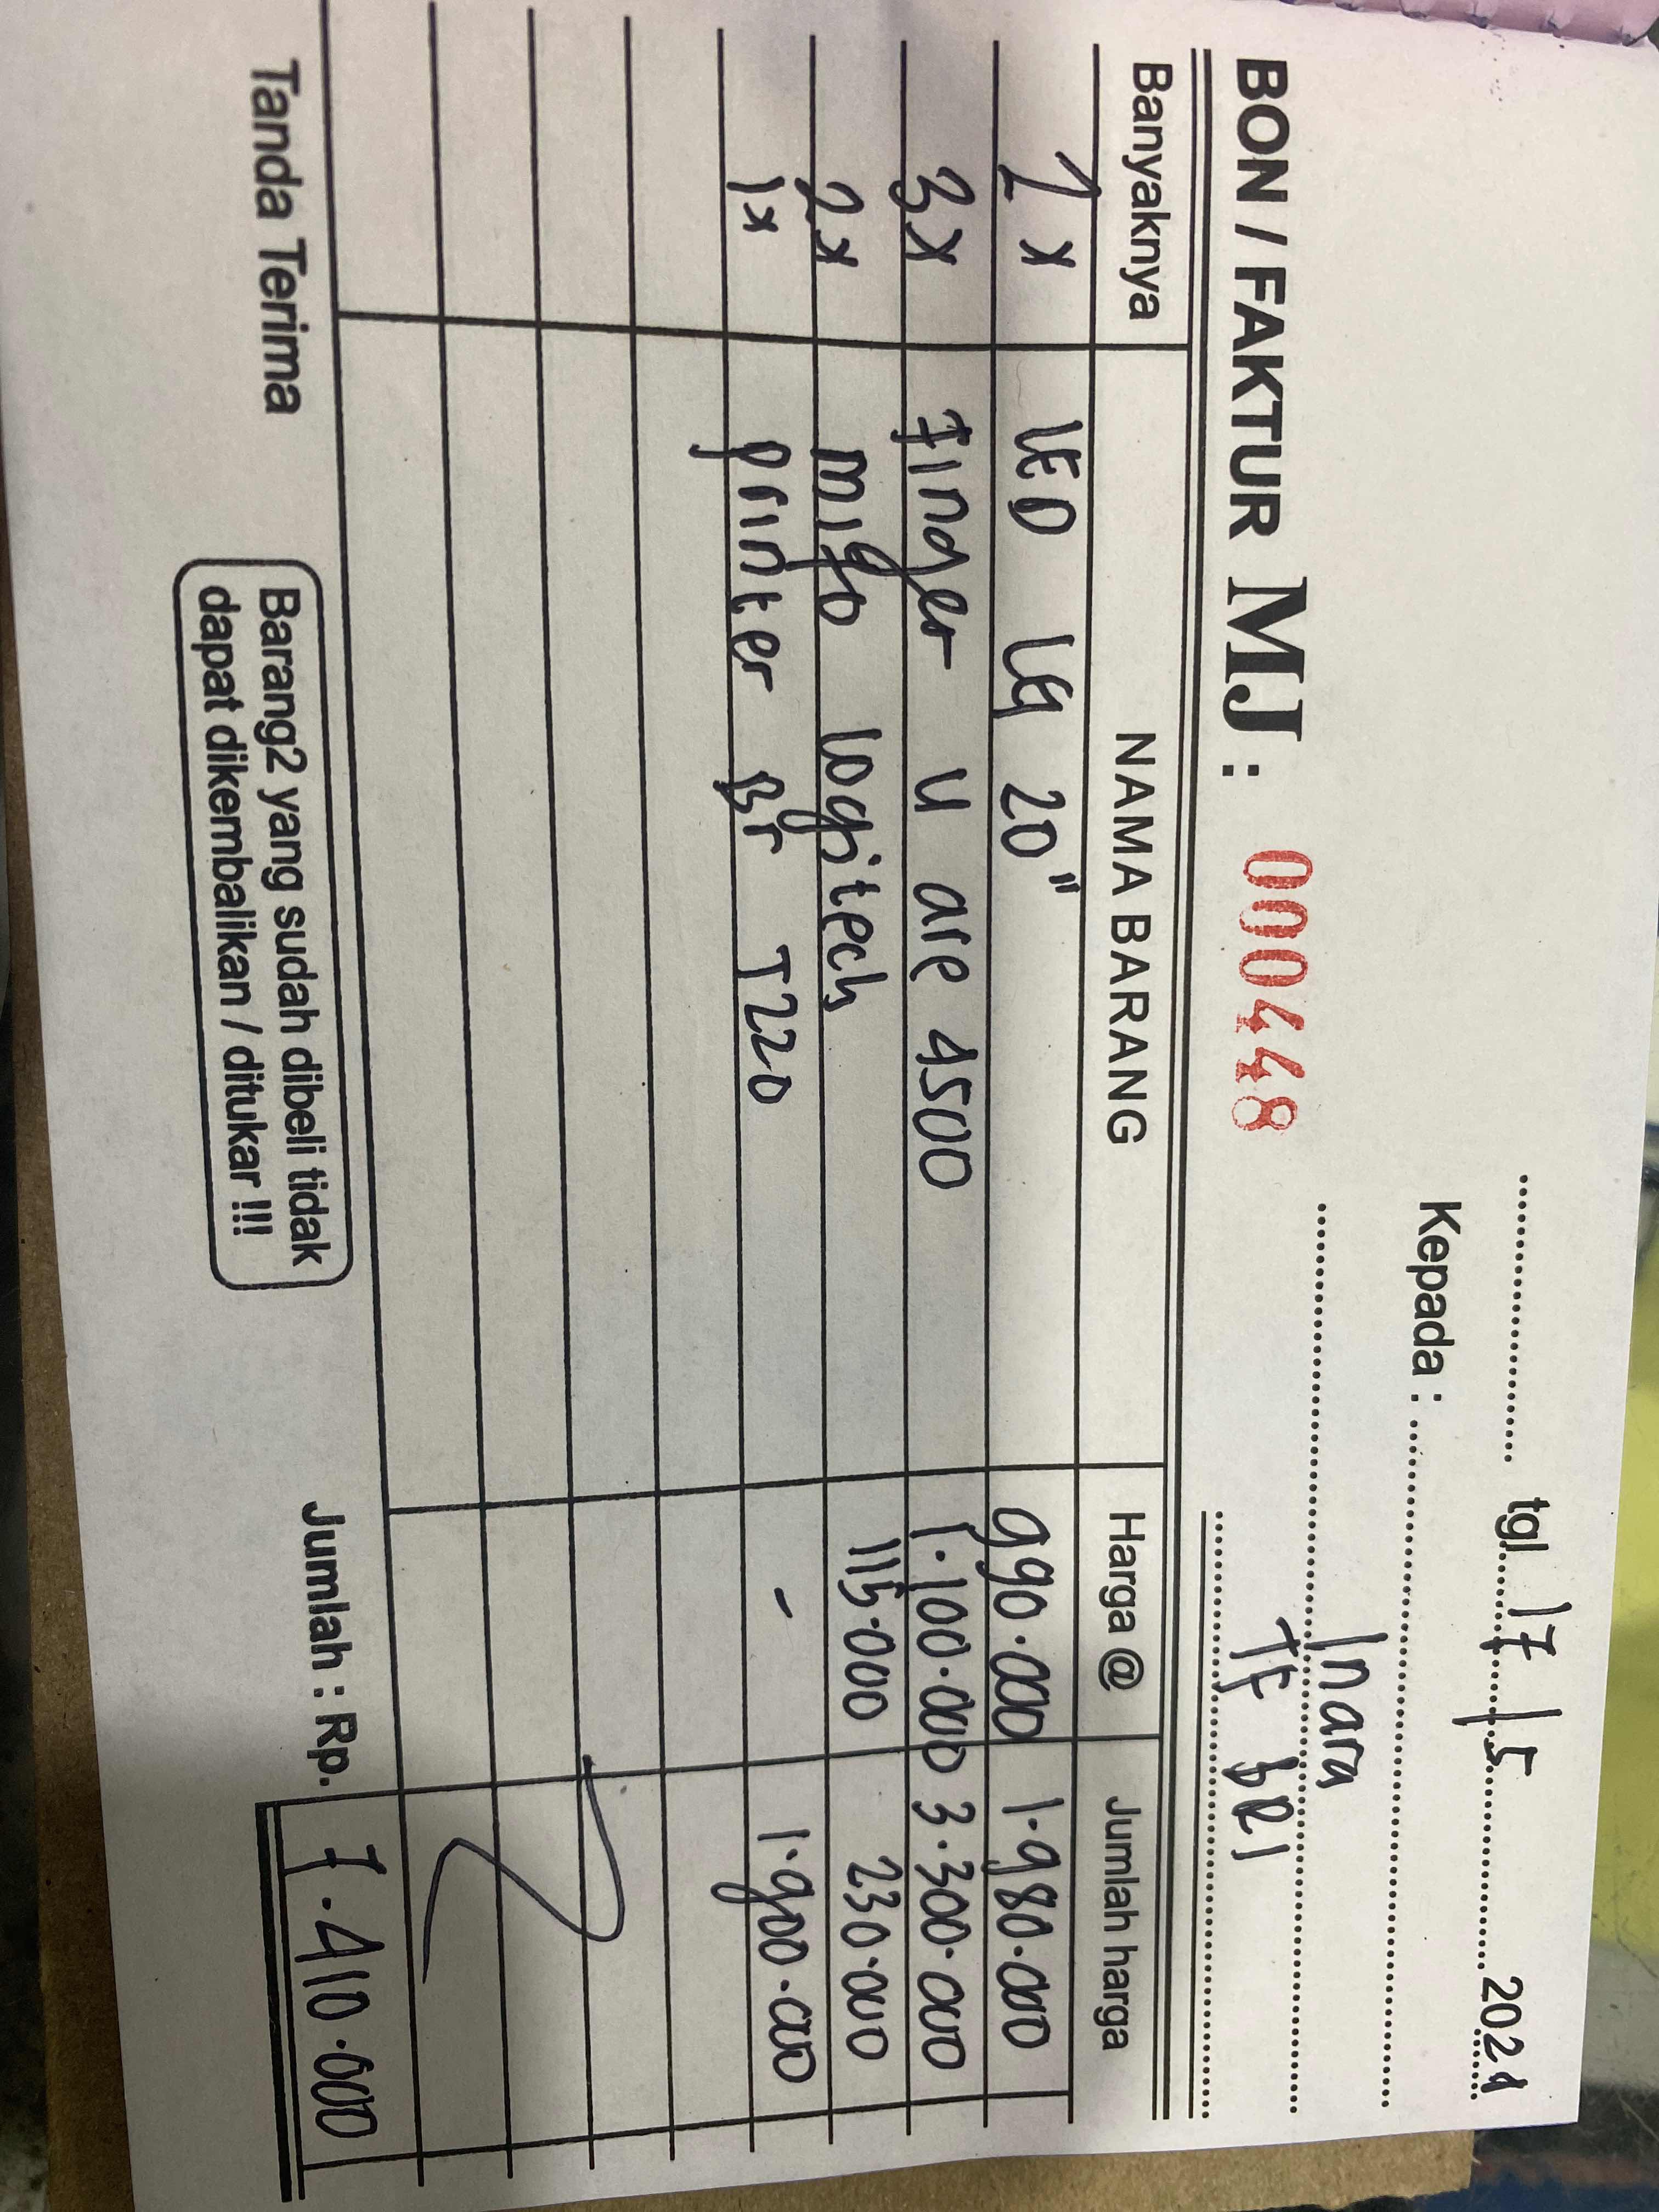 tgl. 17/5 2024
Kepada :
Inara
BON / FAKTUR MJ : 000448
TF BRI
Banyaknya NAMA BARANG Harga @ Jumlah harga
2 x LED LG 20" 990.000 1.980.000
3x Finger U are 4500 1.100.000 3.300.000
2x logitech 115.000 230.000
1x printer Br T220 - 1.900.000
Tanda Terima
Barang2 yang sudah dibeli tidak
dapat dikembalikan / ditukar !!!
Jumlah : Rp. 7.410.000